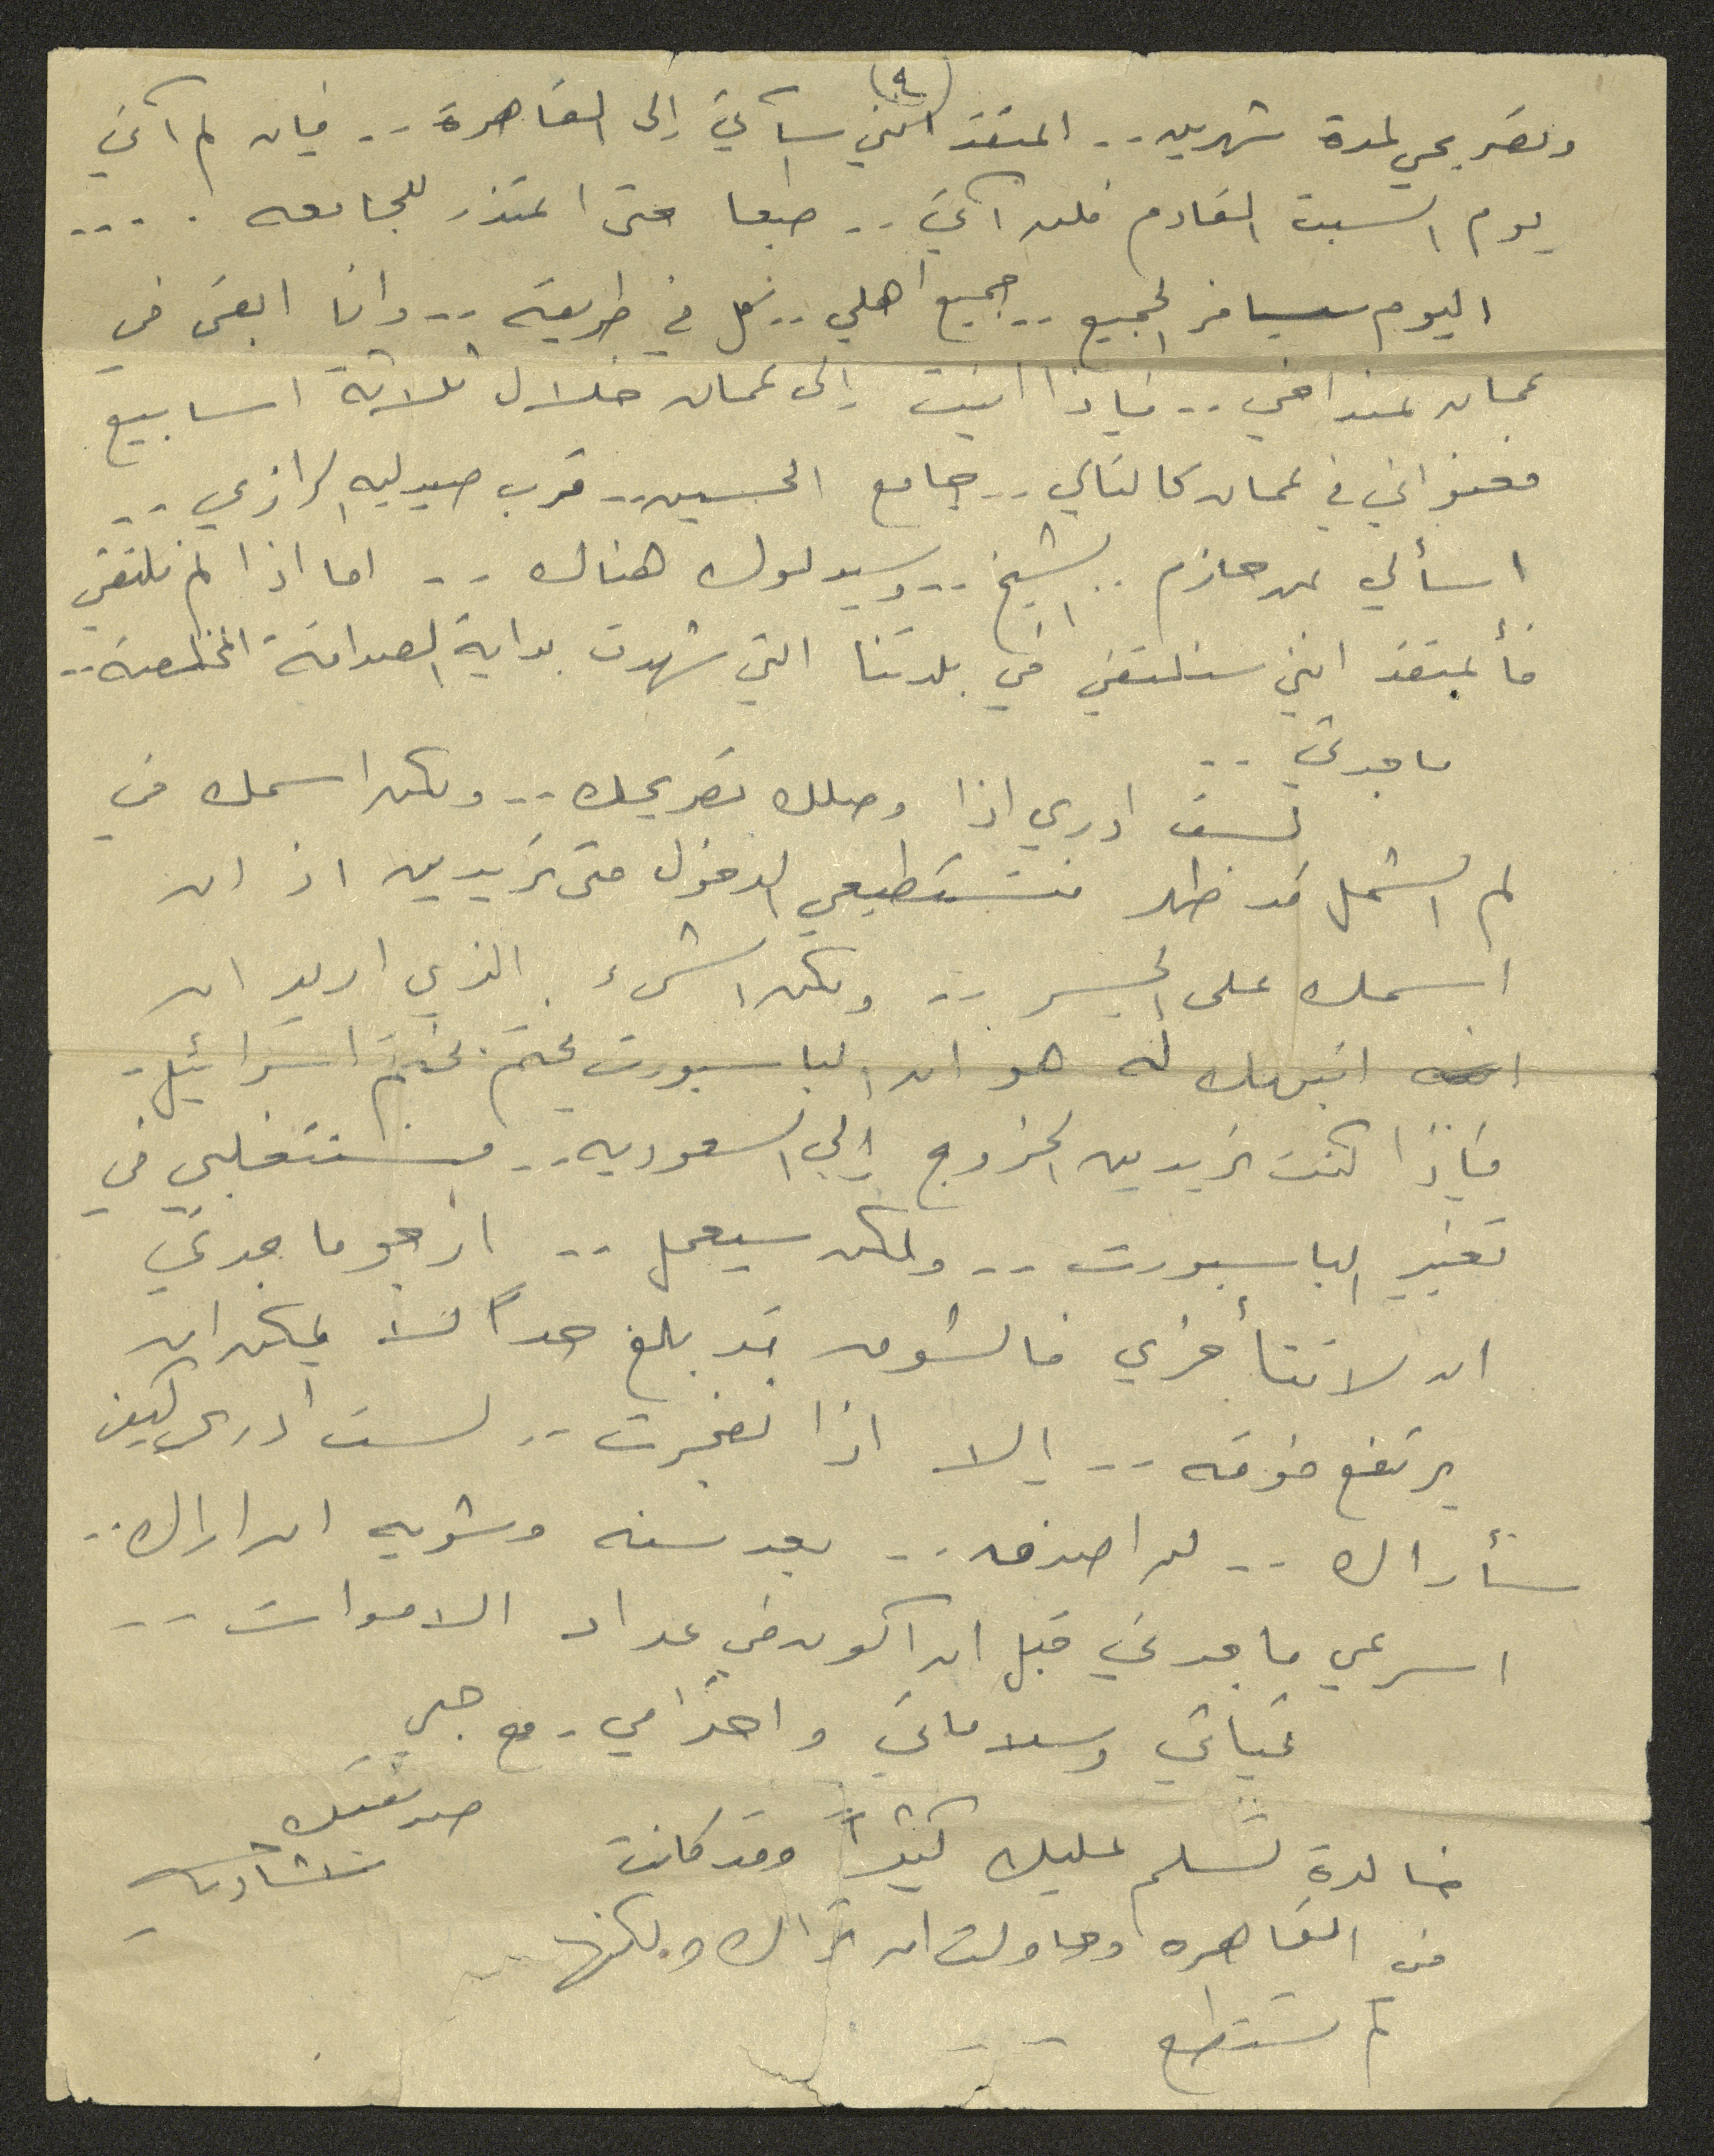 (٤)
وتصريحي لمدة شهرين .. اعتقد انني سآتي إلى القاهرة .. فإن لم آتي
يوم السبت القادم فلن آتي .. طبعا حتى اعتذر للجامعه . ...
اليوم سيسافر الجميع .. جميع اهلي .. كل في طريقه .. وانا ابقى في
عمان عند اخي .. فإذا اتيت إلى عمان خلال ثلاثة اسابيع
فعنواني في عمان كالتالي .. جامع الحسين .. قرب صيدليه الرازي ..
اسألي عن حازم .. الشيخ .. وسيدلوك هناك .. اما اذا لم نلتقي
فأعتقد انني سنلتقي في بلدتنا التي شهدت بداية الصداقة المخلصة ..
ماجدتي ..
لست ادري اذا وصلك تصريحك .. ولكن اسمك في
لم الشمل قد ظهر فتستطيعي الدخول متى تريدين اذ ان
اسمك على الجسر .. ولكن الشيء الذي اريد ان
انبهك له هو ان الباسبورت يختم بختم اسرائيل
فإذا كنت تريدين الخروج إلى السعوديه .. فستتغلبي في
تغيير الباسبورت .. ولكن سيعمل .. ارجو ماجدتي
ان لا تتأخري فالشوق قد بلغ حداً لا يمكن ان
يرتفع فوقه .. إلا اذا تفجرت .. لست ادري كيف
سأراك .. لن اصدق .. بعد سنه وشويه ان اراك ..
اسرعي ماجدتي قبل ان اكون في عداد الاموات ..
تحياتي وسلاماتي واحترامي . مع حبي
صديقتك
خالدة تسلم عليك كثيراً وقد كانت
في القاهره وحاولت ان تراك ولكنها
لم تستطع ..